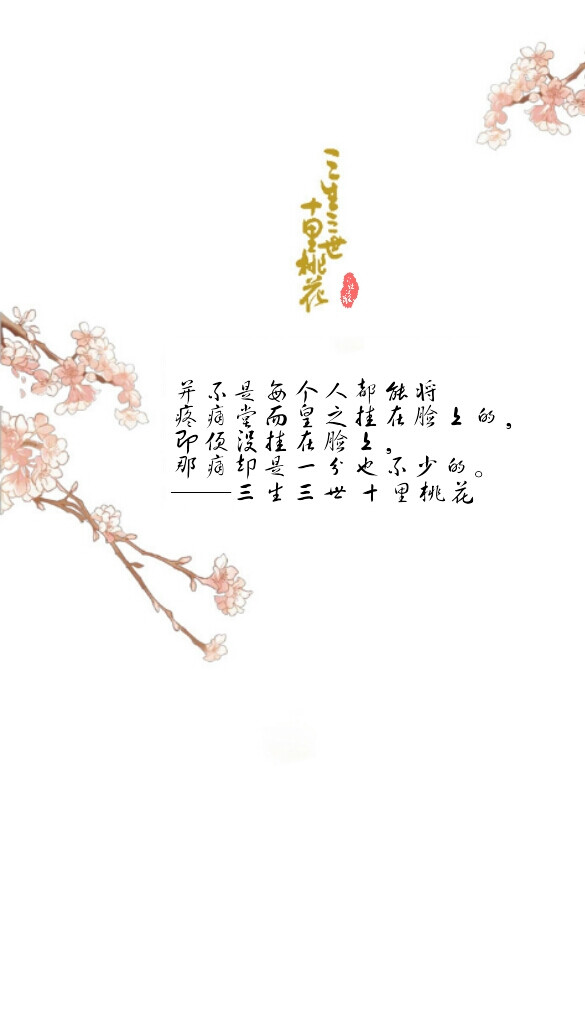 三生三世
十里桃花
并不是每个人都能将
疼痛堂而皇之挂在脸上的，
即便没挂在脸上，
那痛却是一分也不少的。
——三生三世十里桃花